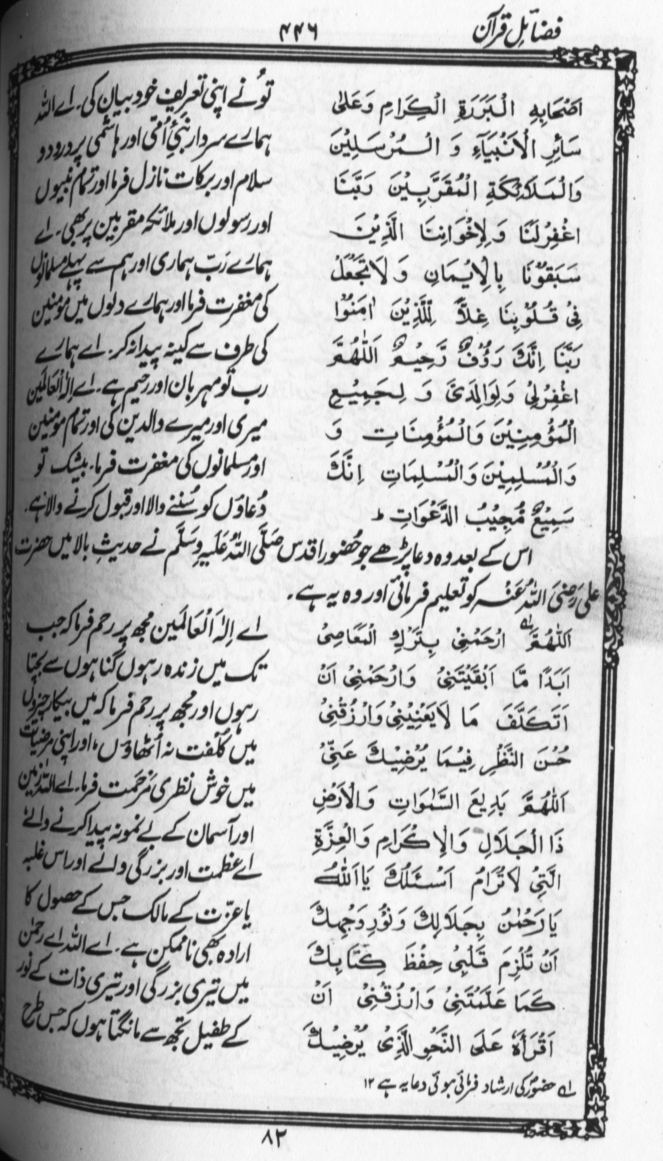 فضائل قرآن
۴۴۶
اَصْحَابِهِ الْبَرَرَةِ الْكِرَامِ وَعَلٰى
سَائِرِ الْاَنْبِيَآءِ وَ الْمُرْسَلِيْنَ
وَالْمَلَائِكَةِ الْمُقَرَّبِيْنَ رَبَّنَا
اغْفِرْلَنَا وَلِاِخْوَانِنَا الَّذِيْنَ
سَبَقُوْنَا بِالْاِيْمَانِ وَلَا تَجْعَلْ
فِىْ قُلُوْبِنَا غِلًّا لِّلَّذِيْنَ اٰمَنُوْا
رَبَّنَا اِنَّكَ رَؤُفٌ رَّحِيْمٌ اَللّٰهُمَّ
اغْفِرْلِىْ وَلِوَالِدَىَّ وَ لِجَمِيْعِ
الْمُؤْمِنِيْنَ وَالْمُؤْمِنَاتِ وَ
وَالْمُسْلِمِيْنَ وَالْمُسْلِمَاتِ اِنَّكَ
سَمِيْعٌ مُّجِيْبُ الدَّعْوَاتِ ط
تو نے اپنی تعریف خود بیان کی۔ اے اللہ
ہمارے سردار نبیٔ اُمّی اور ہاشمی پر درود و
سلام اور برکات نازل فرما اور تمام نبیوں
اور رسولوں اور ملائکہ مقربین پر بھی۔ اے
ہمارے رَب ہماری اور ہم سے پہلے مسلمانوں
کی مغفرت فرما اور ہمارے دلوں میں مؤمنین
کی طرف سے کینہ پیدا نہ کر۔ اے ہمارے
رب تو مہربان اور رحیم ہے۔ اے اِلٰہَ الْعَالَمِین
میری اور میرے والدین کی اور تمام مؤمنین
اور مسلمانوں کی مغفرت فرما۔ بیشک تو
دُعاؤں کو سُننے والا اور قبول کرنے والا ہے۔
اس کے بعد وہ دعا پڑھے جو حُضور اقدس صَلَّی اللّٰہُ عَلَیہِ وَسَلَّم نے حدیثِ بالا میں حضرت
علی رَضِیَ اللّٰہُ عَنْہ کو تعلیم فرمائی اور وہ یہ ہے۔
اَللّٰهُمَّ ارْحَمْنِىْ بِتَرْكِ الْمَعَاصِىْ
اَبَدًا مَّا اَبْقَيْتَنِىْ وَارْحَمْنِىْ اَنْ
اَتَكَلَّفَ مَا لَا يَعْنِيْنِىْ وَارْزُقْنِىْ
حُسْنَ النَّظَرِ فِيْمَا يُرْضِيْكَ عَنِّىْ
اَللّٰهُمَّ بَدِيْعَ السَّمٰوَاتِ وَالْاَرْضِ
ذَا الْجَلَالِ وَالْاِكْرَامِ وَالْعِزَّةِ
الَّتِىْ لَا تُرَامُ اَسْئَلُكَ يَا اَللّٰهُ
يَا رَحْمٰنُ بِجَلَالِكَ وَنُوْرِ وَجْهِكَ
اَنْ تُلْزِمَ قَلْبِىْ حِفْظَ كِتَابِكَ
كَمَا عَلَّمْتَنِىْ وَارْزُقْنِىْ اَنْ
اَقْرَاَهٗ عَلَى النَّحْوِ الَّذِىْ يُرْضِيْكَ
اے اِلٰہَ الْعَالَمِین مجھ پر رحم فرما کہ جب
تک میں زندہ رہوں گناہوں سے بچتا
رہوں اور مجھ پر رحم فرما کہ میں بیکار چیزوں
میں کلفت نہ اُٹھاؤں، اور اپنی مرضیات
میں خوش نظری مَرحمت فرما۔ اے اللہ زمین
اور آسمان کے بے نمونہ پیدا کرنے والے
اے عظمت اور بزرگی والے اور اس غلبہ
یا عزّت کے مالک جس کے حصول کا
ارادہ بھی ناممکن ہے۔ اے اللہ اے رحمٰن
میں تیری بزرگی اور تیری ذات کے نور
کے طفیل تجھ سے مانگتا ہوں کہ جس طرح
لہ حضورؐ کی ارشاد فرمائی ہوئی دعا یہ ہے ۱۲
۸۲